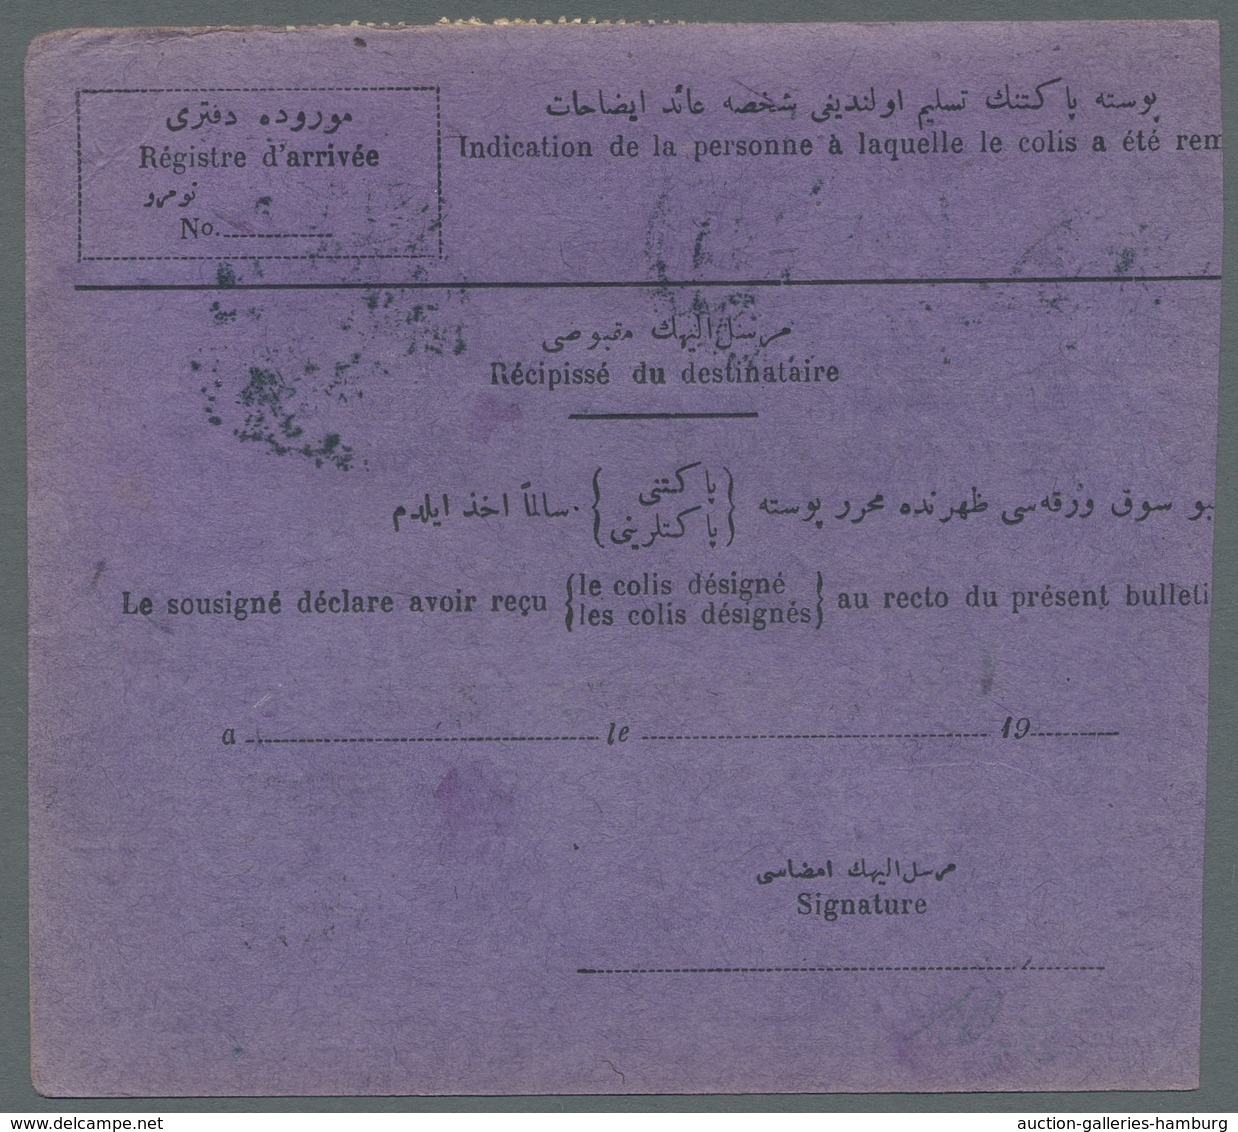 موروده دفتری
Régistre d'arrivée
نومرو
No.
پوسته پاكتنك تسليم اولنديغی شخصه عائد ايضاحات
Indication de la personne à laquelle le colis a été rem
مرسل اليهك مقبوضی
Récipissé du destinataire
بو سوق ورقه‌سی ظهرنده محرر پوسته { پاكتنی
پاكتلرينی } سالماً اخذ ايلدم.
Le sousigné déclare avoir reçu { le colis désigné
les colis désignés } au recto du présent bulleti
a le 19
مرسل اليهك امضاسی
Signature
www.delcampe.net
auction-galleries-hamburg